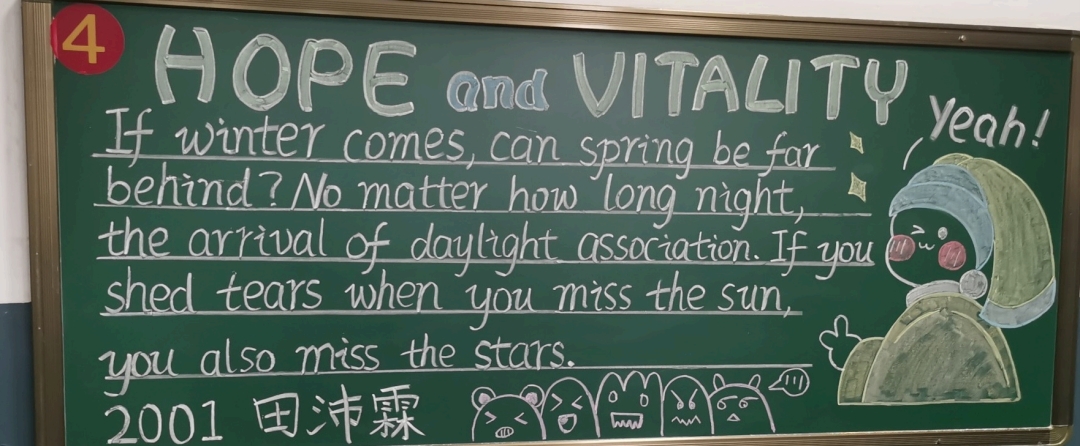 4
HOPE and VITALITY
Yeah!
If winter comes, can spring be far
behind? No matter how long night,
the arrival of daylight association. If you
shed tears when you miss the sun,
you also miss the stars.
2001 田沛霖